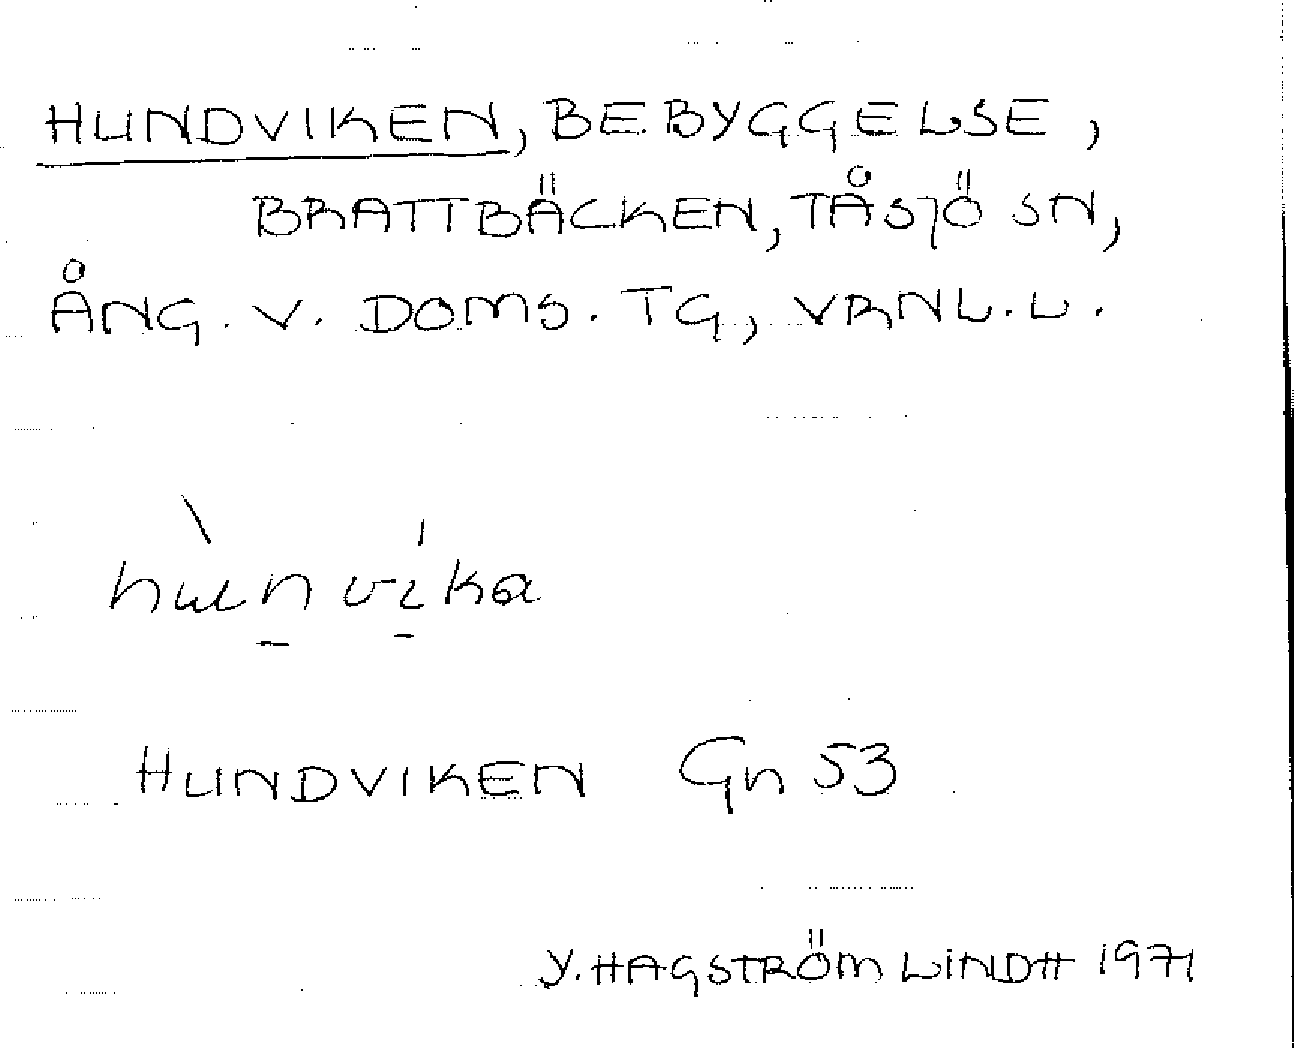 HUNDVIKEN, BEBYGGELSE,
BRATTBÄCKEN, TÅSJÖ SN,
ÅNG. V. DOMS. TG, VRNL. L.
hùn̠vi̠ˈka
HUNDVIKEN Gn 53
Y. HAGSTRÖM LINDH 1971